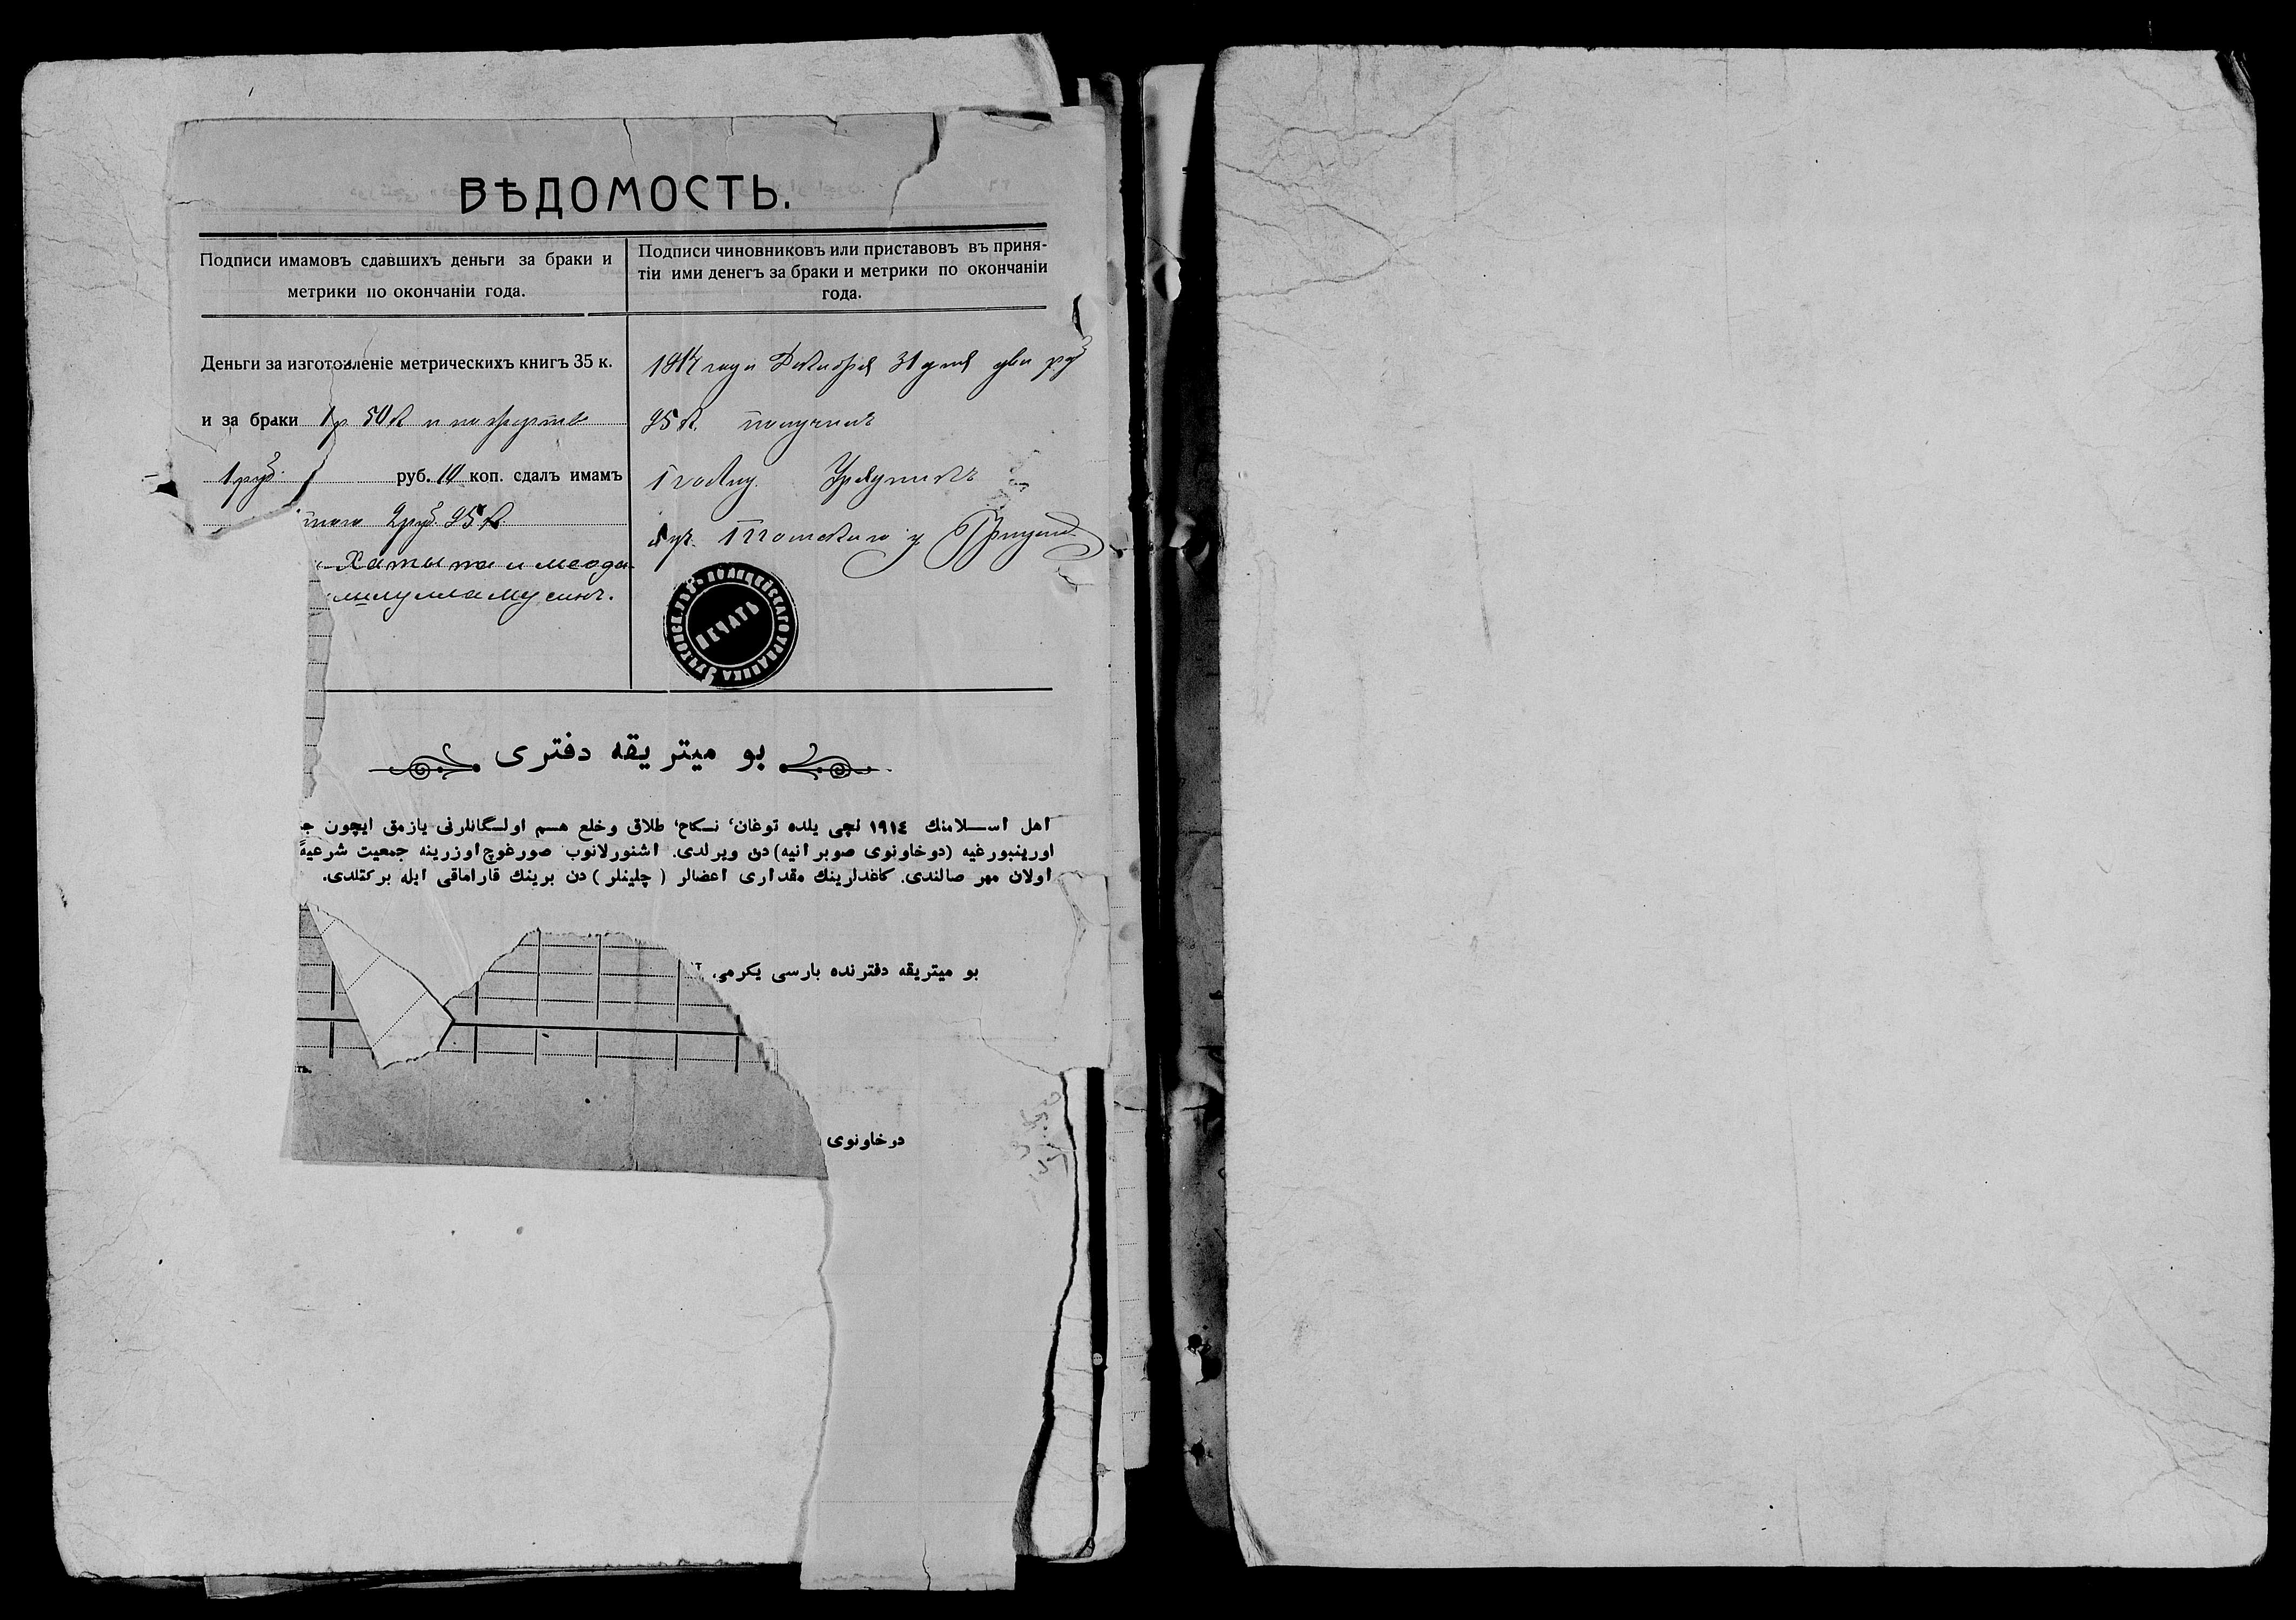 ВѢДОМОСТЬ.
Подписи имамовъ сдавшихъ деньги за браки и
метрики по окончаніи года.
Подписи чиновниковъ или приставовъ въ приня-
тіи ими денегъ за браки и метрики по окончаніи
года.
Деньги за изготовленіе метрическихъ книгъ 35 к.
и за браки 1 р 50 к и
1 руб. руб. 10 коп. сдалъ имамъ
2 руб. 95 к.
Хатыпъ и
Мусинъ.
1914 года Декабря 31 дня два руб
95 к. получилъ
Урядникъ
ПЕЧАТЬ
ПОЛИЦЕЙСКАГО УРЯДНИКА
بو ميتريقه دفترى
اهل اســلامنك ١٩١٤ نچى يلده توغان، نـكاح، طلاق وخلع هـم اولـگانلرنى يازمق ايچون جـ
اورينبورغيه (دوخاونوى صوبرانيه) دن ويرلدى. اشنورلانوب صورغوچ اوزرينه جمعيت شرعيۀ
اولان مهر صالندى. كاغدلرينك مقدارى اعضالر (چلينلر) دن برينك قاراماقى ايله بركتلدى.
بو ميتريقه دفترنده بارسى يكرمى
درخاونوى